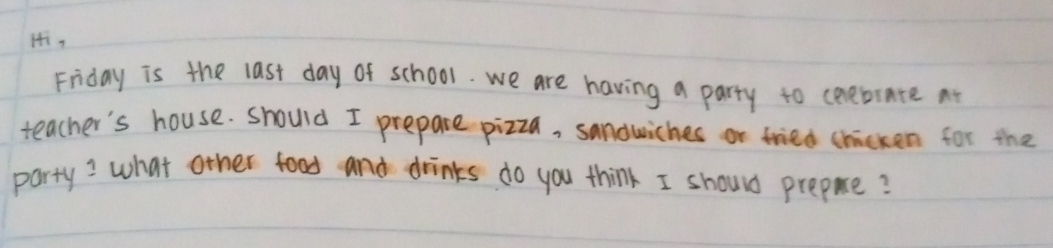 Hi,
Friday is the last day of school. We are having a party to celebrate at
teacher's house. Should I prepare pizza, sandwiches or fried chicken for the
party? What other food and drinks do you think I should prepare?